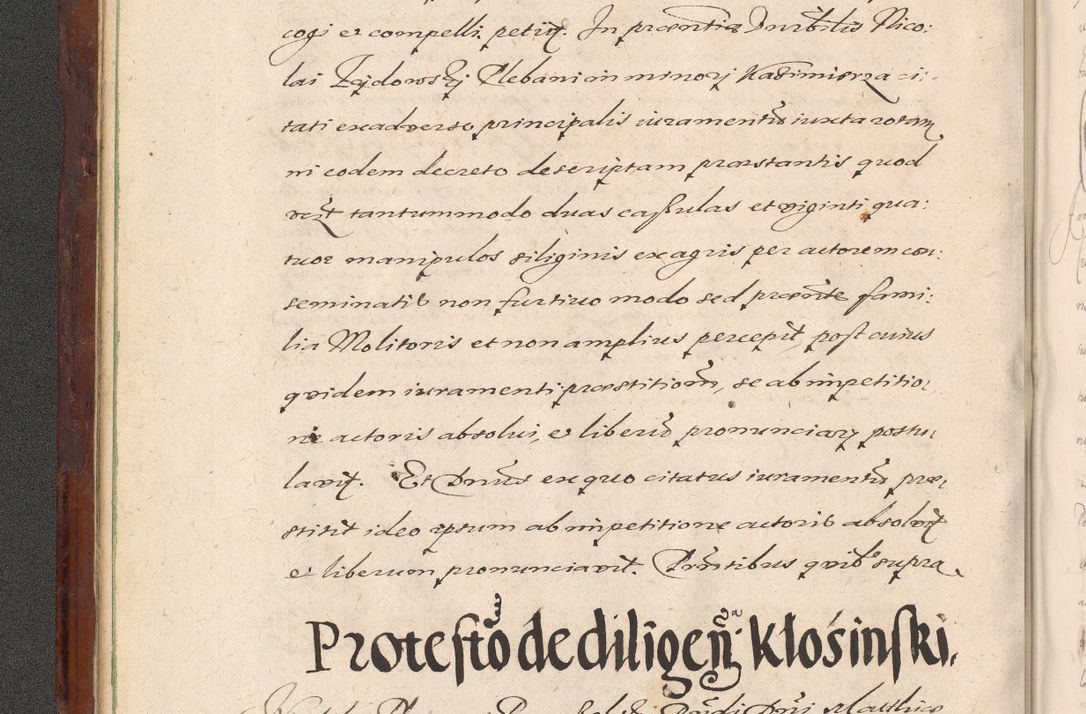 cogi et compelli petiit. In præsentia Dni nobilis Nico:
lai Zajdowskj Plebani in minorj Kazimierza ci:
tati ex adverso principalis iuramentũ iuxta rotam
ni eodem decreto descriptam præstantis quod
tantummodo duas cassulas et viginti qua:
tuor manipulos siliginis ex agris per actorem con:
seminatis non furtiuo modo sed præsente fami:
lia Molitoris et non amplius percepit, post cuius
quidem iuramenti præstitionẽ, se ab impetitio:
ne actoris absolui, et liberũ pronunciary postu:
lavit. Et Dnus ex quo citatus iuramentũ præ:
stitit ideo ipsum ab impetitione actoris absolvit
et liberum pronunciavit. Prñtibus quibs supra.
Protestõ de diligeñ: Kłosinski.